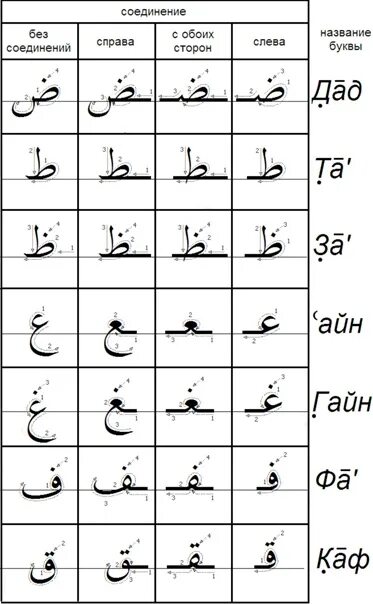 соединение
без соединений
справа
с обоих сторон
слева
название буквы
ض ـض ـضـ ضـ Д̣а̄д
ط ـط ـطـ طـ Т̣а̄'
ظ ـظ ـظـ ظـ З̣а̄'
ع ـع ـعـ عـ ʿайн
غ ـغ ـغـ غـ Г̣айн
ف ـف ـفـ فـ Фа̄'
ق ـق ـقـ قـ К̣а̄ф